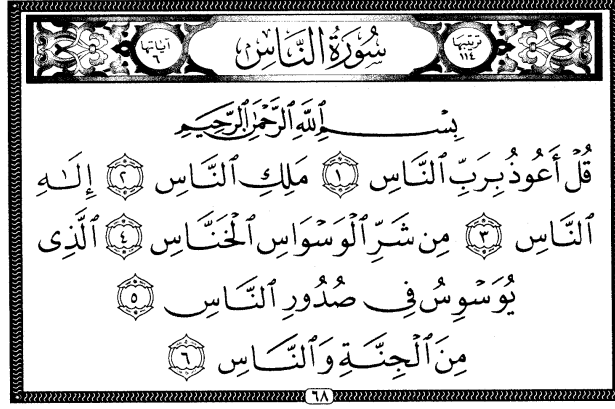 ترتيبها ١١٤ سُورَةُ النَّاسِ آياتها ٦
بِسْمِ ٱللَّهِ ٱلرَّحْمَٰنِ ٱلرَّحِيمِ
قُلْ أَعُوذُ بِرَبِّ ٱلنَّاسِ ١ مَلِكِ ٱلنَّاسِ ٢ إِلَٰهِ
ٱلنَّاسِ ٣ مِن شَرِّ ٱلْوَسْوَاسِ ٱلْخَنَّاسِ ٤ ٱلَّذِى
يُوَسْوِسُ فِى صُدُورِ ٱلنَّاسِ ٥
مِنَ ٱلْجِنَّةِ وَٱلنَّاسِ ٦
٦٨